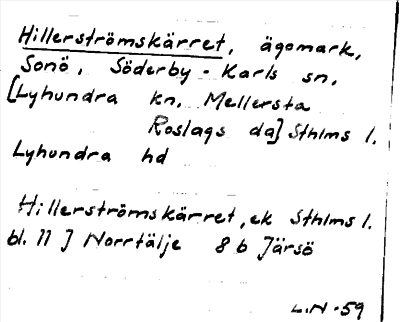 Hillerströmskärret, ägomark,
Sonö, Söderby-Karls sn,
[Lyhundra kn, Mellersta
Roslags da] Sthlms l.
Lyhundra hd
Hillerströmskärret, ek Sthlms l.
bl. 11 J Norrtälje 8 b Järsö
L.N -59